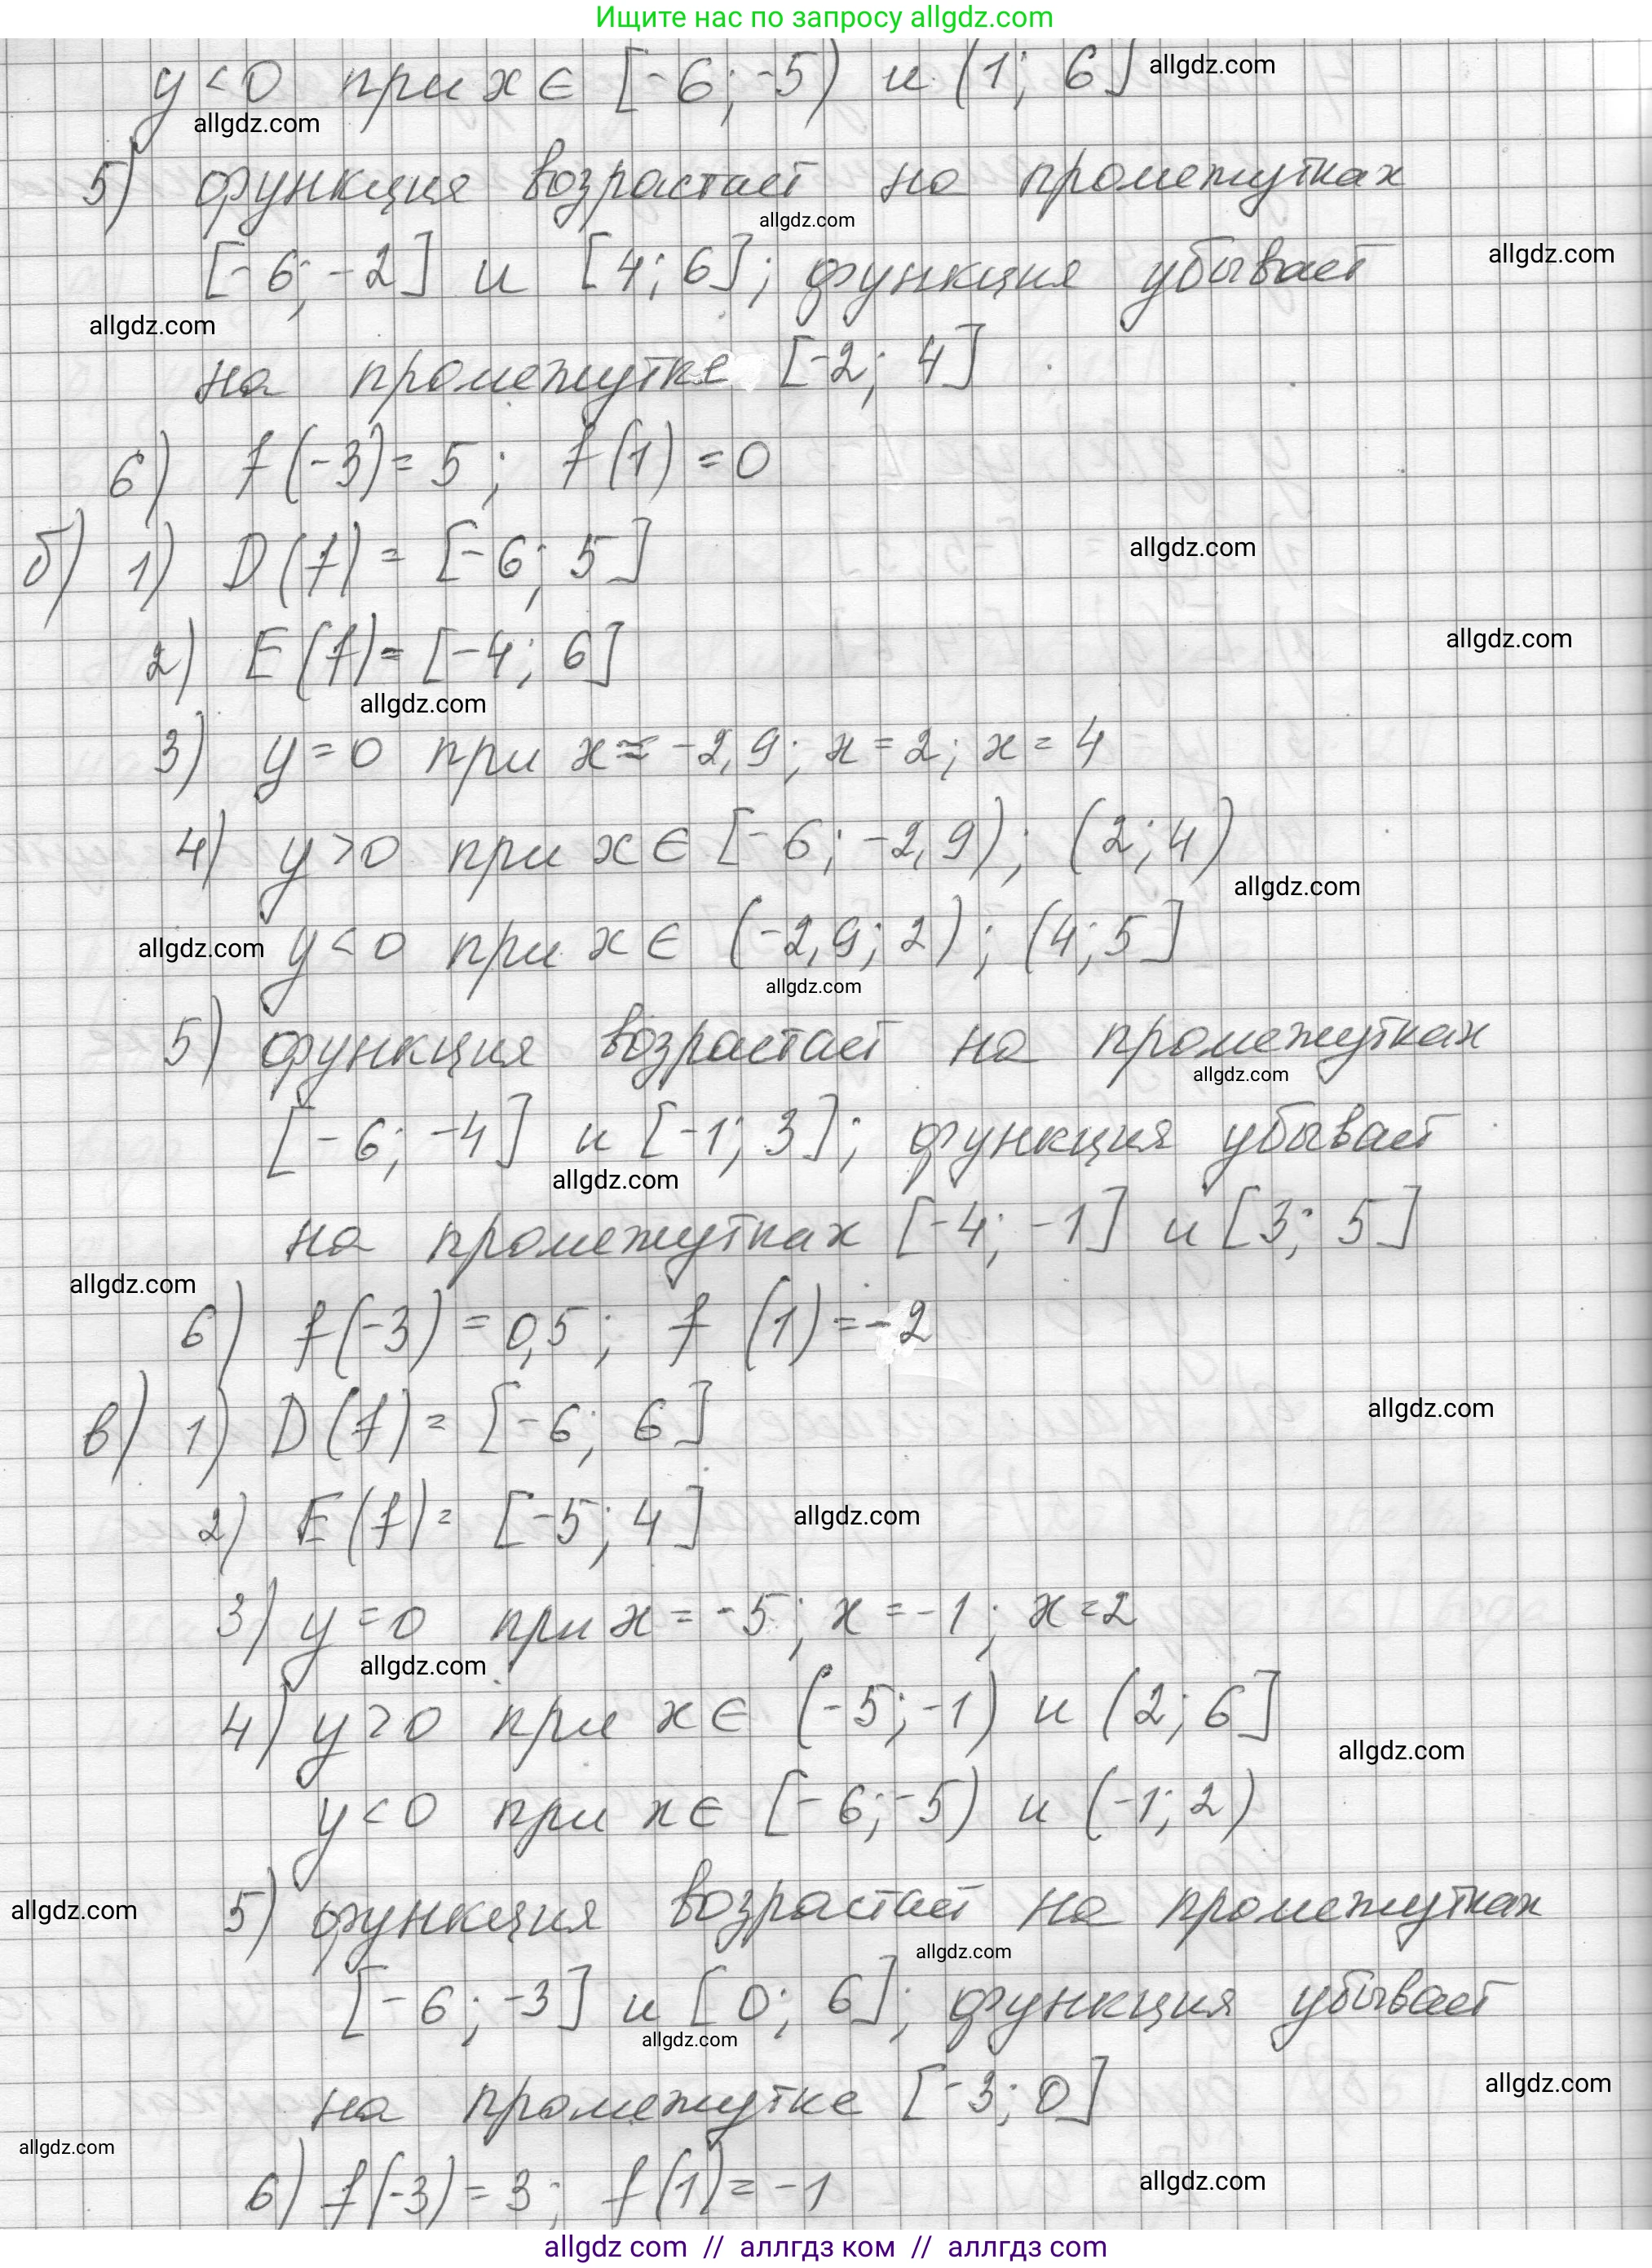 Ищите нас по запросу allgdz.com
y<0 при x∈ [-6; -5) и (1; 6] allgdz.com
allgdz.com
5) функция возрастает на промежутках
allgdz.com
[-6; -2] и [4; 6]; функция убывает allgdz.com
allgdz.com
на промежутке [-2; 4]
6) f(-3)=5; f(1)=0
б) 1) D(f)= [-6; 5] allgdz.com
2) E(f)= [-4; 6] allgdz.com
allgdz.com
3) y=0 при x≈-2,9; x=2; x=4
4) y>0 при x∈ [-6; -2,9); (2; 4)
allgdz.com
allgdz.com y<0 при x∈ (-2,9; 2); (4; 5]
allgdz.com
5) функция возрастает на промежутках
allgdz.com
[-6; -4] и [-1; 3]; функция убывает
allgdz.com
на промежутках [-4; -1] и [3; 5]
allgdz.com
6) f(-3)=0,5; f(1)=-2
в) 1) D(f)= [-6; 6] allgdz.com
2) E(f)= [-5; 4] allgdz.com
3) y=0 при x=-5; x=-1; x=2
allgdz.com
4) y>0 при x∈ (-5; -1) и (2; 6]
allgdz.com
y<0 при x∈ [-6; -5) и (-1; 2)
allgdz.com 5) функция возрастает на промежутках
allgdz.com
[-6; -3] и [0; 6]; функция убывает
allgdz.com
на промежутке [-3; 0] allgdz.com
allgdz.com
6) f(-3)=3; f(1)=-1 allgdz.com
allgdz com // аллгдз ком // аллгдз com